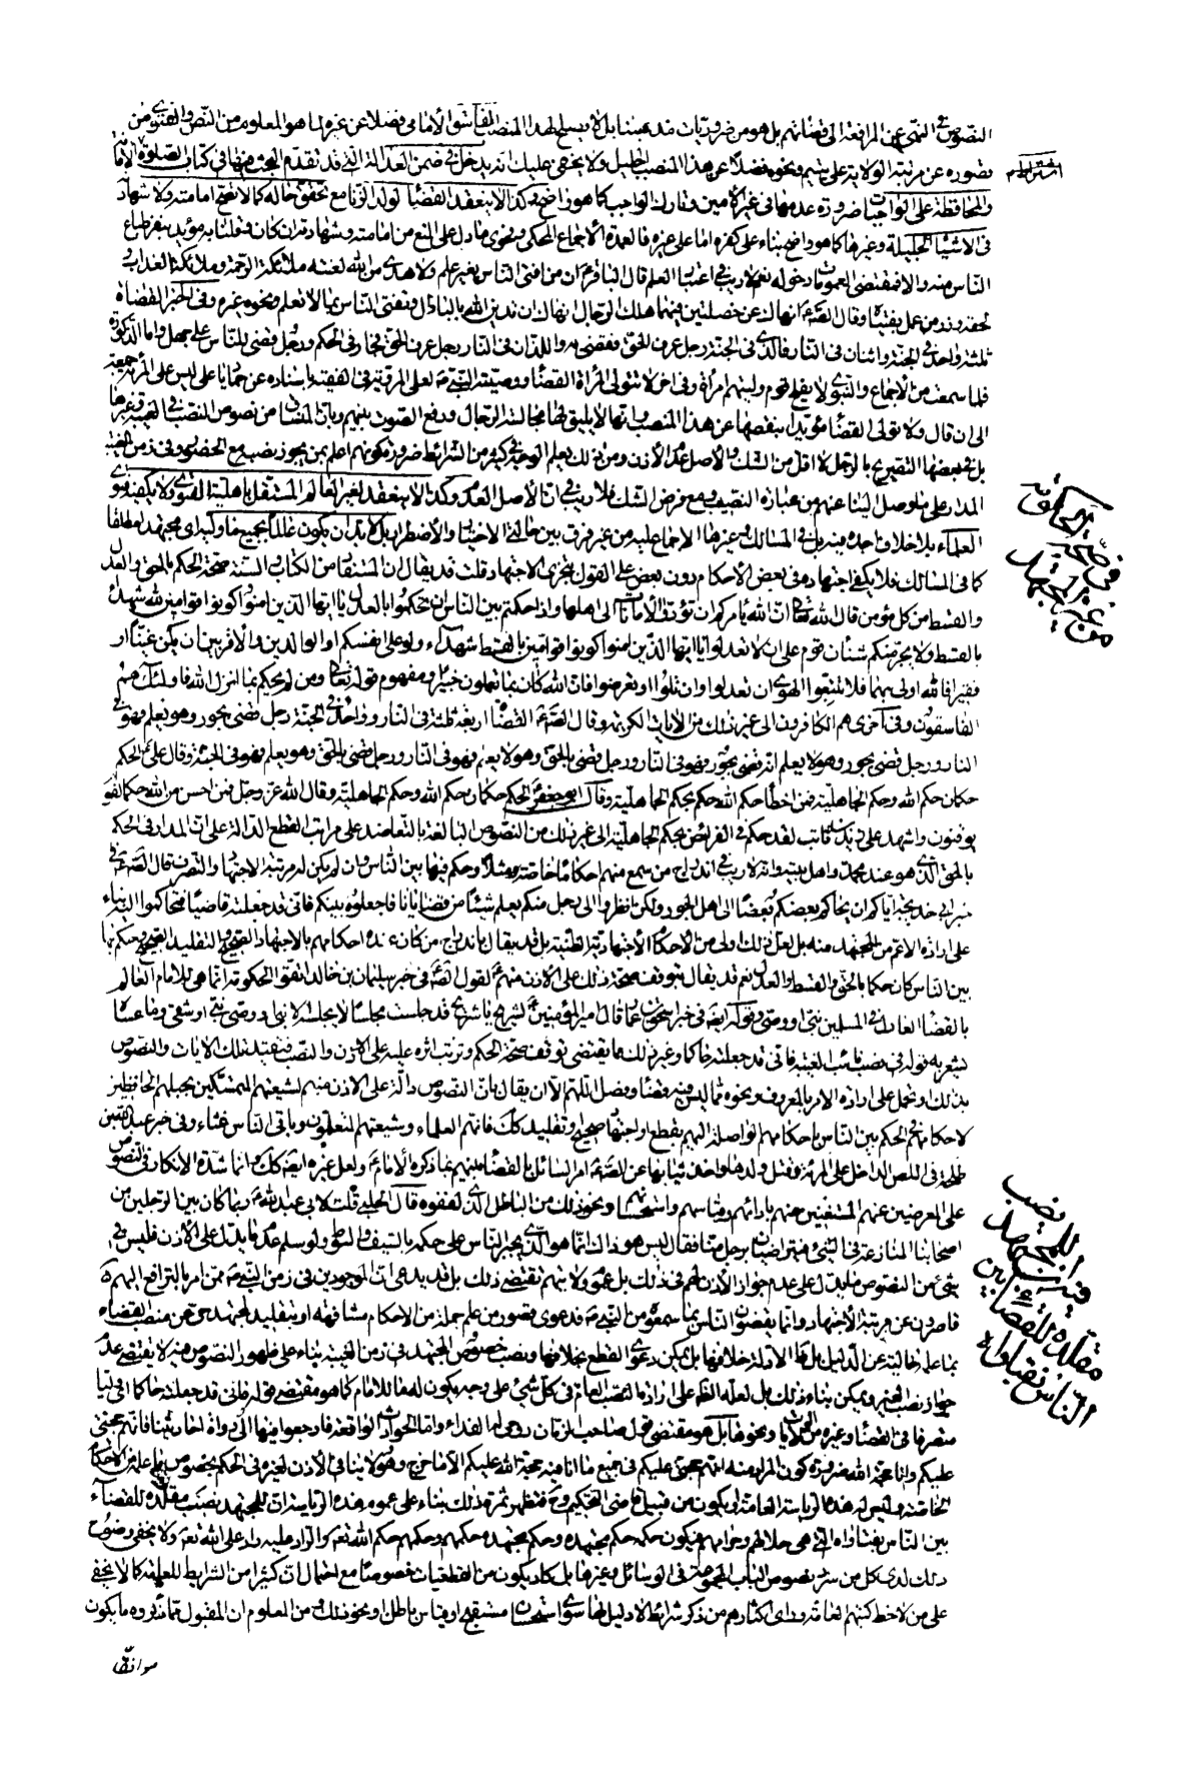 النصوص في النهي عن المرافعة الى قضاتهم بل هو من ضروريات مذهبنا بل لا يصلح لهذا المنصب الفاسق الامامي فضلا عن غيره لما هو المعلوم من النص والفتوى من
قصوره عن مرتبة الولاية على يتيم ونحوه فضلا عن هذا المنصب الجليل ولا يخفى عليك انه يدخل في ضمن العدالة التي قد تقدم البحث فيها في كتاب الصلوة الامانة
والمحافظة على الواجبات ضرورة عدمها في غير الامين وتارك الواجب كما هو واضح وكذا لا ينعقد القضاء لولد الزنا مع تحقق حاله كما لا تصح امامته ولا شهادته
في الاشياء الجليلة وغيرها كما هو واضح بناء على كفره اما على غيره فالعمدة الاجماع المحكي وفحوى ما دل على المنع من امامته وشهادته ان كان وقلنا به مؤيد بنفر طباع
الناس منه والا فمقتضى العمومات دخوله نعم لا ريب في اعتبار العلم قال الباقر ع ان من افتى الناس بغير علم ولا هدى من الله لعنته ملائكة الرحمة وملائكة العذاب و
لحقه وزر من عمل بفتياه وقال الصم ع انهاك عن خصلتين فيهما هلك الرجال انهاك ان تدين الله بالباطل وتفتي الناس بما لا تعلم ونحوه غيره وفي الخبر القضاة
ثلثة واحد في الجنة واثنان في النار فالذي في الجنة رجل عرف الحق فقضى به واللذان في النار رجل عرف الحق فجار في الحكم ورجل قضى للناس على جهل واما الذكورة
فلما سمعت من الاجماع والنبوي لا يفلح قوم وليتهم امرأة وفي اخر لا تتولى المرأة القضاء ووصية النبي ص لعلي المروية في الفقيه باسناده عن حماد يا علي ليس على المرأة جمعة
الى ان قال ولا تولى القضاء مؤيدا بنقصها عن هذا المنصب وانها لا يليق لها مجالسة الرجال ورفع الصوت بينهم وبان المنساق من نصوص النصب في الغيبة وغيرها
بل في بعضها التصريح بالرجل لا اقل من الشك والاصل عدم الاذن ومن ذلك يعلم الوجه في كثير من الشرائط ضرورة كونهم اعلم بمن يجوز نصبه مع الحضور وفي زمن الغيبة
المدار على ما وصل الينا عنهم من عبارة النصب ومع فرض الشك فلا ريب في ان الاصل العدم وكذا لا ينعقد لغير العالم المستقل باهلية الفتوى ولا يكفيه فتوى
العلماء بلا خلاف اجده فيه بل في المسالك وغيرها الاجماع عليه من غير فرق بين حالتي الاختيار والاضطرار بل لا بد ان يكون عالما بجميع ما وليه اي مجتهدا مطلقا
كما في المسالك فلا يكفي اجتهاده في بعض الاحكام دون بعض على القول بتجزى الاجتهاد قلت قد يقال ان المستفاد من الكتاب والسنة صحة الحكم بالحق والعدل
والقسط من كل مؤمن قال الله تعالى ان الله يامركم ان تؤدوا الامانات الى اهلها واذا حكمتم بين الناس ان تحكموا بالعدل يا ايها الذين امنوا كونوا قوامين لله شهداء
بالقسط ولا يجرمنكم شنئان قوم على ان لا تعدلوا يا ايها الذين امنوا كونوا قوامين بالقسط شهداء ولو على انفسكم او الوالدين والاقربين ان يكن غنيا او
فقيرا فالله اولى بهما فلا تتبعوا الهوى ان تعدلوا وان تلووا او تعرضوا فان الله كان بما تعملون خبيرا ومفهوم قوله تعالى ومن لم يحكم بما انزل الله فاولئك هم
الفاسقون وفي اخرى هم الكافرون الى غير ذلك من الايات الكريمة وقال الصم ع القضاة اربعة ثلثة في النار وواحد في الجنة رجل قضى بجور وهو يعلم فهو في
النار ورجل قضى بجور وهو لا يعلم انه قضى بجور فهو في النار ورجل قضى بالحق وهو لا يعلم فهو في النار ورجل قضى بالحق وهو يعلم فهو في الجنة وقال علي ع الحكم
حكمان حكم الله وحكم الجاهلية فمن اخطأ حكم الله حكم بحكم الجاهلية وقال ابو جعفر ع الحكم حكمان حكم الله وحكم الجاهلية وقال الله عز وجل فمن احسن من الله حكما لقوم
يوقنون واشهد على زيد بن ثابت لقد حكم في الفرائض بحكم الجاهلية الى غير ذلك من النصوص البالغة بالتعاضد على مراتب القطع الدالة على ان المدار في الحكم
بالحق الذي هو عند محمد واهل بيته وانه لا ريب في اندراج من سمع منهم احكاما خاصة مثلا وحكم فيها بين الناس وان لم يكن له مرتبة الاجتهاد والتصرف قال الصم ع في
خبر ابي خديجة اياكم ان يحاكم بعضكم بعضا الى اهل الجور ولكن انظروا الى رجل منكم يعلم شيئا من قضايانا فاجعلوه بينكم فاني قد جعلته قاضيا فتحاكموا اليه بناء
على ارادة الاعم من المجتهد منه بل لعل ذلك اولى من الاحكام الاجتهادية الظنية بل قد يقال باندراج من كان عنده احكامهم بالاجتهاد الصحيح او التقليد الصحيح وحكم بها
بين الناس كان حكما بالحق والقسط والعدل نعم قد يقال بتوقف صحة ذلك على الاذن منهم ع لقول الصم ع في خبر سليمان بن خالد اتقوا الحكومة انما هي للامام العالم
بالقضاء العادل في المسلمين نبي او وصي وقوله ايضا في خبر اسحق بن عمار قال امير المؤمنين ع لشريح يا شريح قد جلست مجلسا لا يجلسه الا نبي او وصي نبي او شقي وما عساه
يشعر به قوله في نصب نائب الغيبة فاني قد جعلته حاكما وغير ذلك مما يقتضي توقف صحة الحكم وترتب اثره عليه على الاذن والنصب فتقيد تلك الايات والنصوص
بذلك وتحمل على ارادة الامر بالمعروف ونحوه مما ليس فيه قضاء وفصل اللهم الا ان يقال بان النصوص دالة على الاذن منهم لشيعتهم المتمسكين بحبلهم الحافظين
لاحكامهم في الحكم بين الناس باحكامهم الواصلة اليهم بقطع او اجتهاد صحيح او تقليد كك فانهم العلماء وشيعتهم المتعلمون وباقي الناس غثاء وفي خبر عبد الله بن
طلحة في اللص الداخل على المرأة وقتل ولدها واخذ ثيابها عن الصم ع امر السائل بالقضاء بينهم بما ذكره الامام ع ولعل غيره ايضا كك وانما شدة الانكار في النصوص
على المعرضين عنهم المستغنين عنهم بارائهم وقياسهم واستحسانهم ونحو ذلك من الباطل الذي لفقوه قال الحلبي قلت لابي عبد الله ع ربما كان بين الرجلين من
اصحابنا المنازعة في الشيء فيتراضيان برجل منا فقال ليس هو ذاك انما هو الذي يجبر الناس على حكمه بالسيف والسوط ولو سلم عدم ما يدل على الاذن فليس في
شيء من النصوص ما يدل على عدم جواز الاذن لهم في ذلك بل عموم ولايتهم تقتضي ذلك بل قد يدعى ان الموجودين في زمن النبي ص ممن امر بالترافع اليهم
قاصرون عن مرتبة الاجتهاد وانما يقضون بين الناس بما سمعوه من النبي ص فدعوى قصور من علم جملة من الاحكام مشافهة او بتقليد لمجتهد عن منصب القضاء
بما علمه خالية عن الدليل بل ظاهر الادلة خلافها بل يمكن دعوى القطع بخلافها ونصب خصوص المجتهد في زمن الغيبة بناء على ظهور النصوص فيه لا يقتضي عدم
جواز نصب الغير ويمكن بناء ذلك بل لعله الظاهر على ارادة النصب العام في كل شيء على وجه يكون له ما للامام كما هو مقتضى قوله فاني قد جعلته حاكما اي وليا
متصرفا في القضاء وغيره من الولايات ونحوها بل هو مقتضى قول صاحب الزمان روحي له الفداء واما الحوادث الواقعة فارجعوا فيها الى رواة احاديثنا فانهم حجتي
عليكم وانا حجة الله ضرورة كون المراد منه انهم حجتي عليكم في جميع ما انا فيه حجة الله عليكم الا ما خرج وهو لا ينافي الاذن لغيره في الحكم بخصوص ما علمه من الاحكام
الخاصة وليس له هذه الرياسة العامة او يكون من قبيل قاضي التحكيم وح فتظهر ثمرة ذلك بناء على عموم هذه الرياسة ان للمجتهد نصب مقلده للقضاء
بين الناس بفتاواه التي هي حلالهم وحرامهم فيكون حكمه حكم مجتهده وحكم مجتهده حكمهم وحكمهم حكم الله تعالى والراد عليه راد على الله تعالى ولا يخفى وضوح
ذلك لدى كل من سرد نصوص الباب المجموعة في الوسائل وغيرها بل كاد يكون من القطعيات خصوصا مع احتمال ان كثيرا من الشرايط للعامة كما لا يخفى
على من لاحظ كتبهم العامة وراى اكثارهم من ذكر شرائط لا دليل لها سوى استحسان مستقبح او قياس باطل او نحو ذلك ومن المعلوم ان المقبول مما ذكروه ما يكون
موافقا
في صحة الحكومة
من غير المجتهد
في ان للمجتهد نصب
مقلده للقضاء بين
الناس بفتاواه